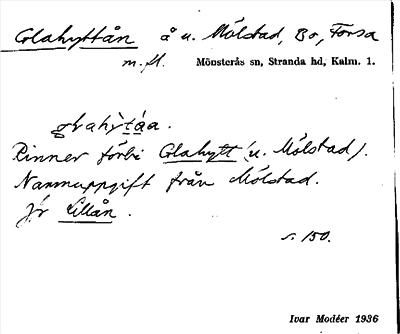 Glahyttån å u. Mölstad, Bo, Forsa
m. fl. Mönsterås sn, Stranda hd, Kalm. l.
Rinner förbi Glahytt (u. Mölstad).
Namnuppgift från Mölstad.
Jr Lillån.
s. 150.
Ivar Modéer 1936